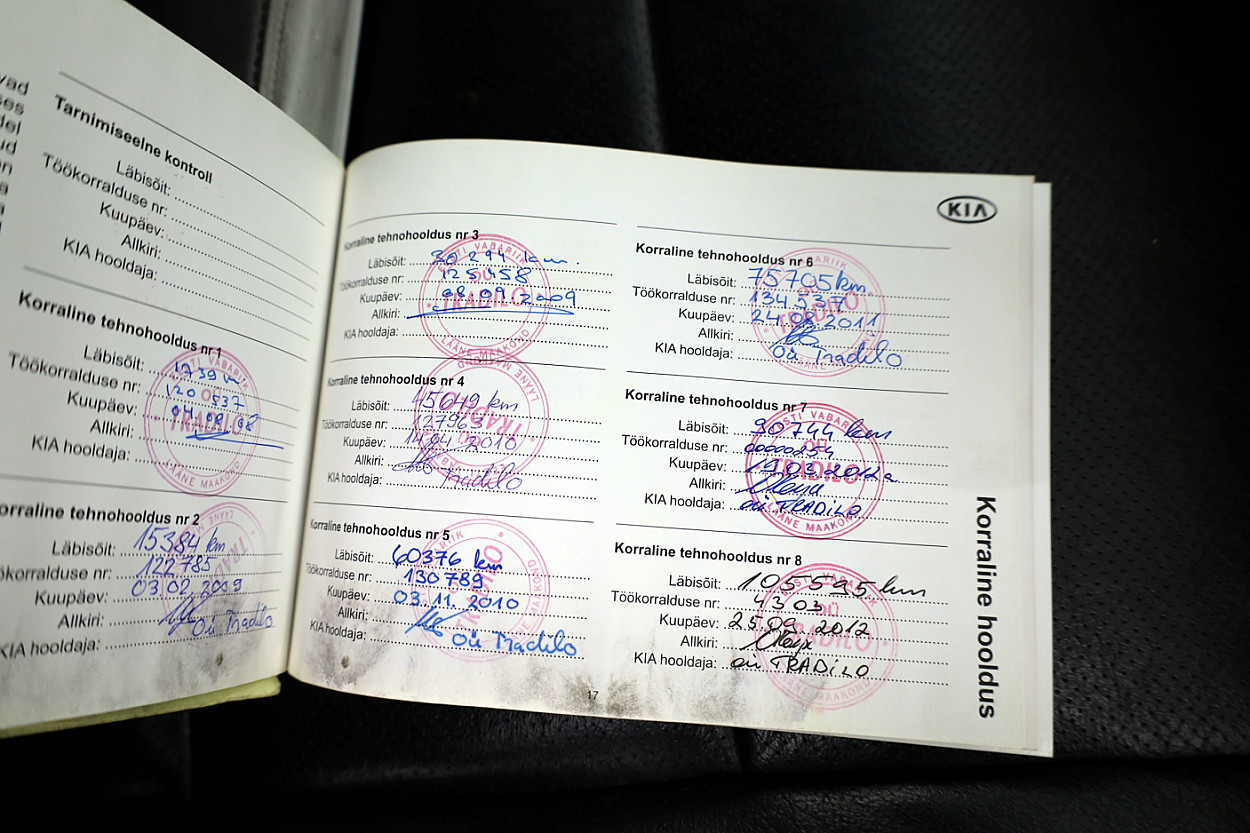 vad
ses
del
ud
Tarnimiseelne kontroll
Läbisõit:
Töökorralduse nr:
Kuupäev:
Allkiri:
KIA hooldaja:
Korraline tehnohooldus nr 1
Läbisõit: 1739
Töökorralduse nr: 120 537
Kuupäev: 04.09.08
Allkiri:
KIA hooldaja:
TRADILO
LÄÄNE MAAKOND
orraline tehnohooldus nr 2
Läbisõit: 15384 km
ökorralduse nr: 122785
Kuupäev: 03.02.2009
Allkiri:
KIA hooldaja: Oü Tradilo
Korraline tehnohooldus nr 3
Läbisõit: 30 294 km.
Töökorralduse nr: 125458
Kuupäev: 08.09.2009
Allkiri:
KIA hooldaja:
EESTI VABARIIK
OÜ
TRADILO
LÄÄNE MAAKOND
Korraline tehnohooldus nr 4
Läbisõit: 45049 km
Töökorralduse nr: 127963
Kuupäev: 14.04.2010
Allkiri:
KIA hooldaja: Tradilo
Korraline tehnohooldus nr 5
Läbisõit: 60376 km
Töökorralduse nr: 130789
Kuupäev: 03.11.2010
Allkiri:
KIA hooldaja: Oü Tradilo
17
KIA
Korraline tehnohooldus nr 6
Läbisõit: 75705 km
Töökorralduse nr: 134537
Kuupäev: 24.08.2011
Allkiri:
KIA hooldaja: Oü Tradilo
Korraline tehnohooldus nr 7
Läbisõit: 90744 km
Töökorralduse nr: 0000254
Kuupäev: 19.03.2012
Allkiri:
KIA hooldaja: oü TRADILO
EESTI VABARIIK
OÜ
TRADILO
LÄÄNE MAAKOND
Korraline tehnohooldus nr 8
Läbisõit: 105595 km
Töökorralduse nr: 4303
Kuupäev: 25.09.2012
Allkiri:
KIA hooldaja: oü TRADILO
Korraline hooldus